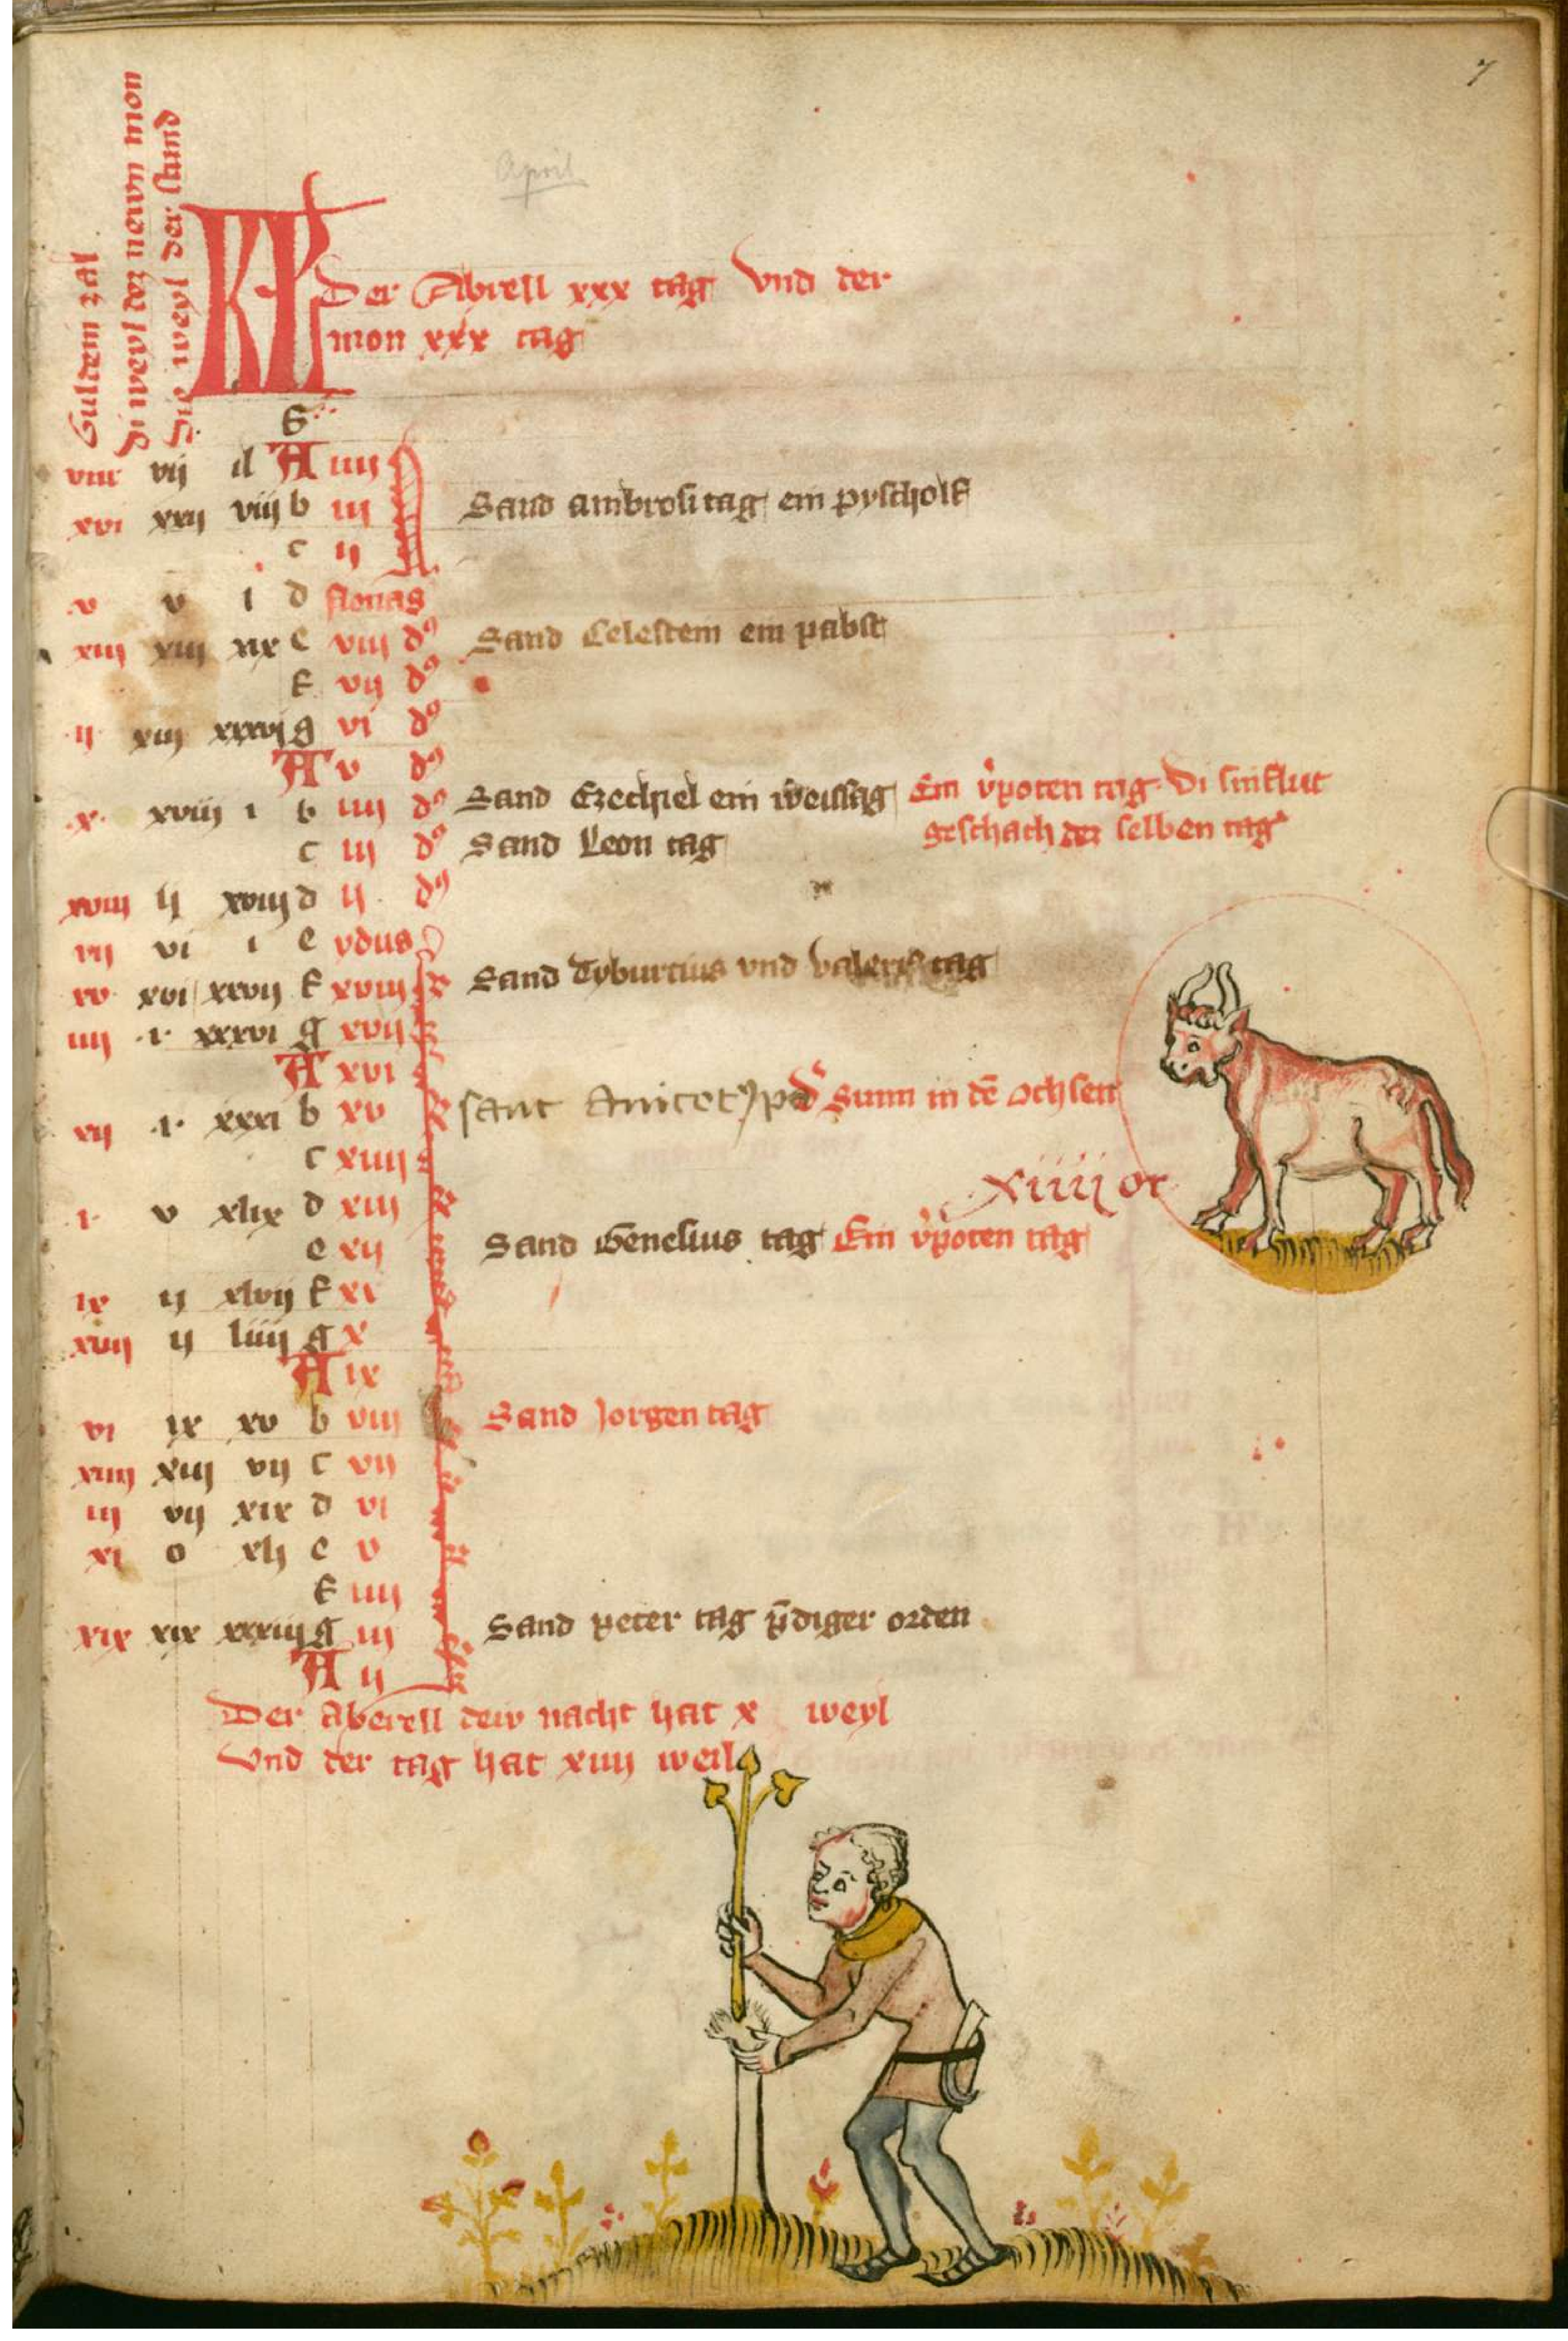 7
April
Guldein zal
Di weyl dez newn mon
Die weyl der stund
KL Der Abrell xxx tag Vnd der
mon xxx tag
G
viii vij il A iiij
xvi xxij viij b iij Sand ambrosi tag ein pyscholf
c ij
v v i d Nonas
xiij xiij xix e viij d9 Sand Celestein ein pabst
f vij d9
ij xiij xxxvj g vi d9
A v d9
x xviij i b iiij d9 Sand Ezechiel ein weissag Ein v'poten tag Di sinflut
geschach der selben tag
c iij d9 Sand Leon tag
xviij ij xviij d ij d9
vij vi i e ydus
xv xvi xxvij f xviij Sand Tyburcius vnd valeri tag
iiij i xxxvi g xvij
A xvi
xij i xxxi b xv sant Anicet Sunn in dē Ochsen
c xiiij
xiiij or
i v xlix d xiij
e xij Sand Genesius tag Ein v'poten tag
ix ij xlvij f xi
xvij ij liiij g x
A ix
vi ix xv b viij Sand Jorgen tag
xiiij xiij vij c vij
iij vij xix d vi
xi o xlj e v
f iiij
xix xix xxxiij g iij Sand peter tag p̄diger orden
A ij
Der Aberell dew nacht hat x weyl
Vnd der tag hat xiiij weil